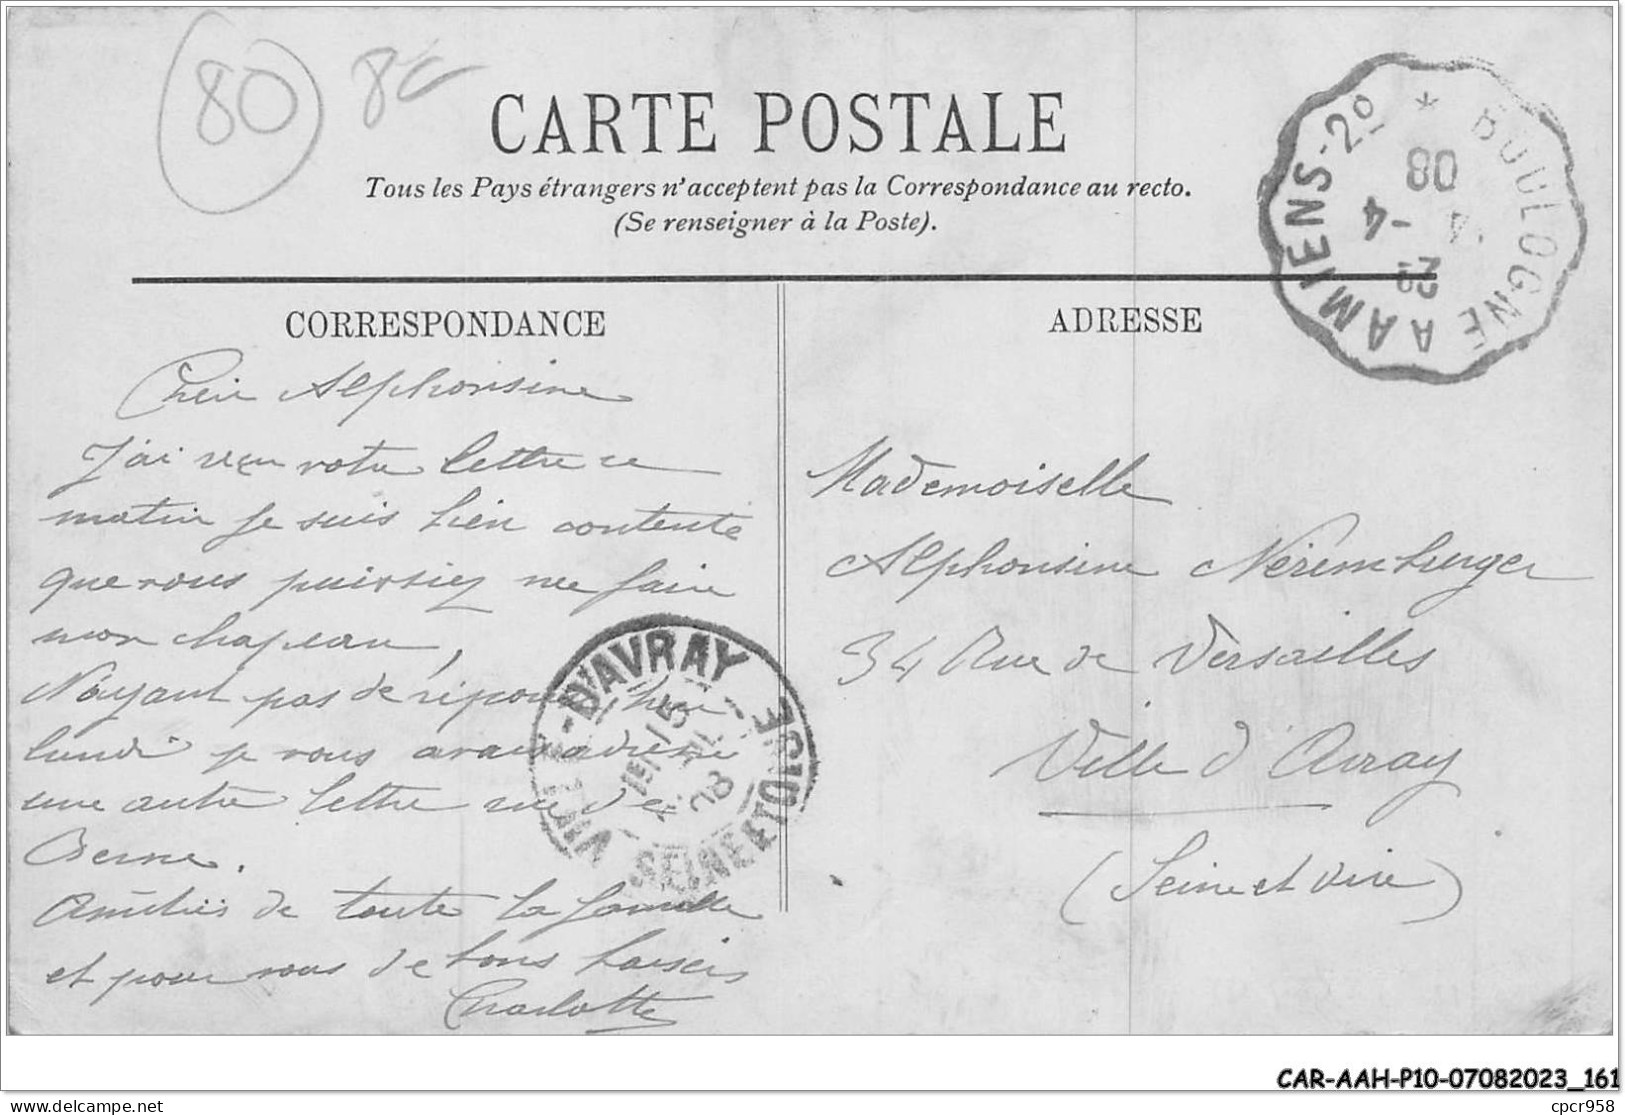 80 80
CARTE POSTALE
Tous les Pays étrangers n'acceptent pas la Correspondance au recto.
(Se renseigner à la Poste).
BOULOGNE A AMIENS - 2º *
08
4 -4
22
CORRESPONDANCE
Cheir Alphonsine
J'ai reçu votre lettre ce
matin je suis bien contente
que vous puissiez me faire
mon chapeau,
N'ayant pas de réponse hier
lundi je vous avais adressé
une autre lettre rue de
Berne.
Amitiés de toute la famille
et pour vous de bons baisers
Charlotte
VILLE-D'AVRAY
SEINE ET OISE
15
08
ADRESSE
Mademoiselle
Alphonsine Néremburger
34 Rue de Versailles
Ville d'Avray
(Seine et Oise)
CAR-AAH-P10-07082023_161
www.delcampe.net
cpcr958